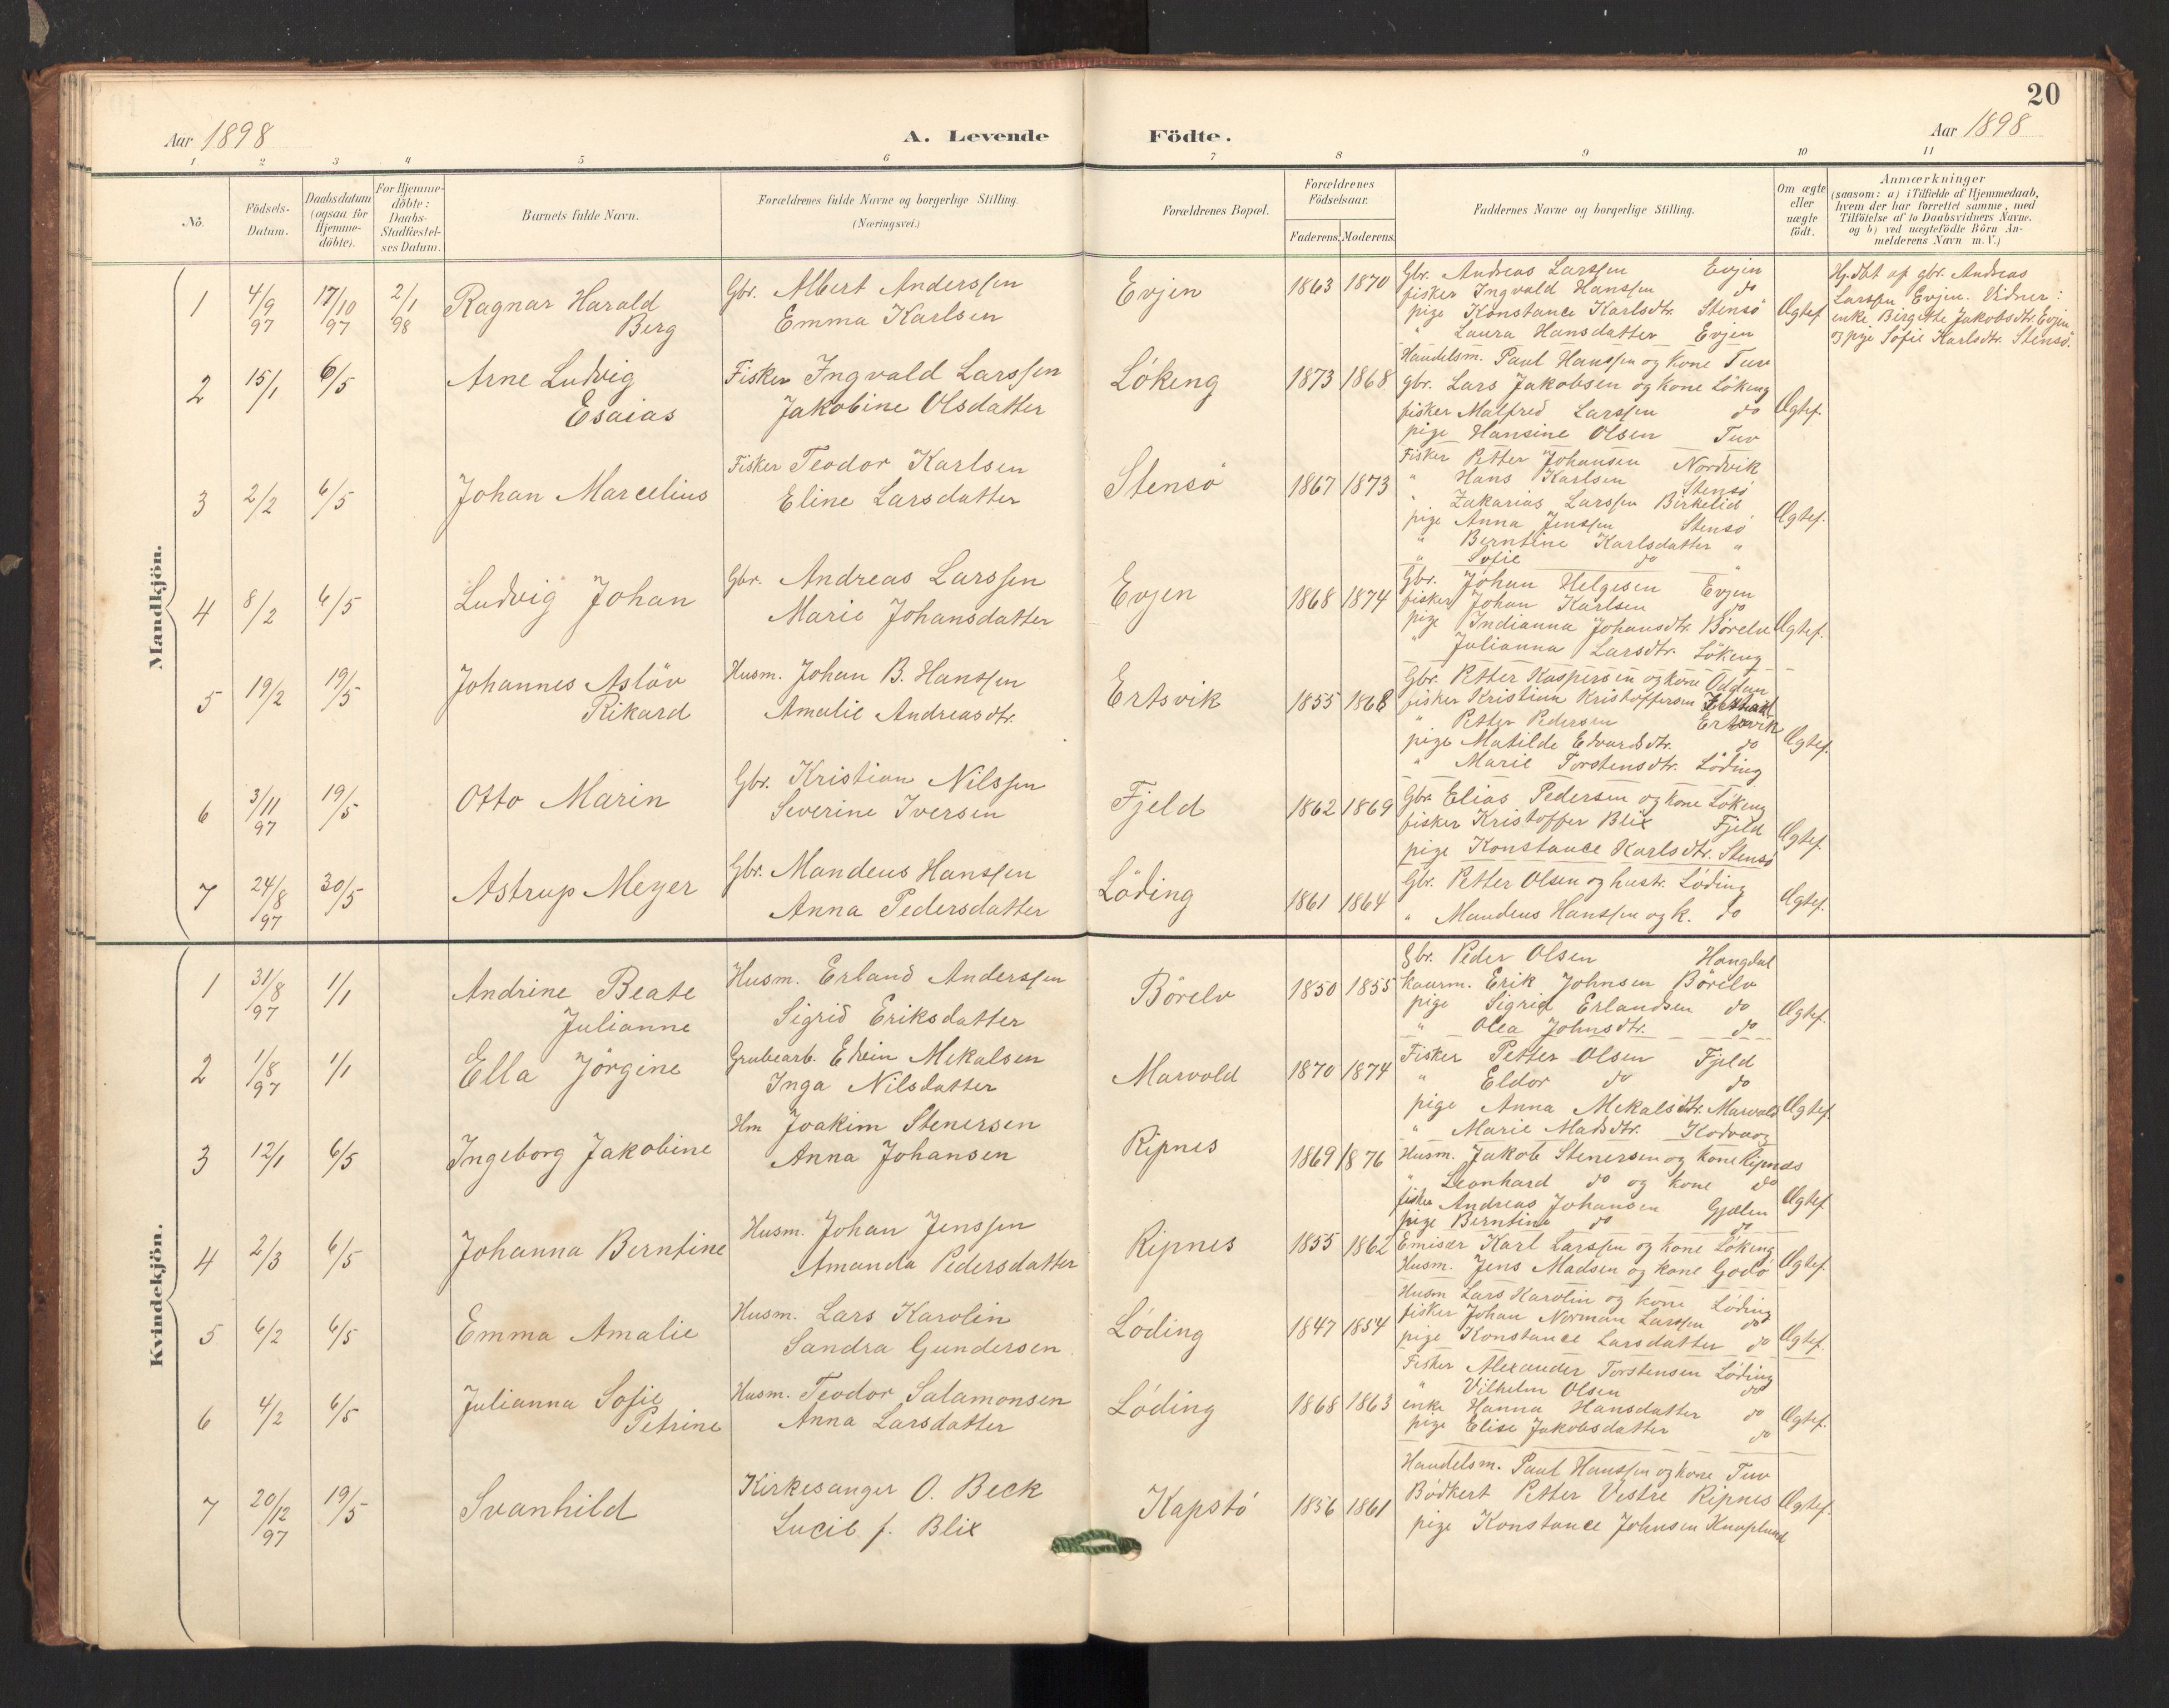 20
Aar 1898 A. Levende Födte. Aar 1898
1 2 3 4 5 6 7 8 9 10 11
No. Födsels-Datum. Daabsdatum (ogsaa for Hjemme-döbte). For Hjemme-döbte: Daabs-Stadfæstel-ses Datum. Barnets fulde Navn. Forældrenes fulde Navne og borgerlige Stilling. (Næringsvei.) Forældrenes Bopæl. Forældrenes Födselsaar. Faderens. Moderens. Faddernes Navne og borgerlige Stilling. Om ægte eller uægte födt. Anmærkninger (saasom: a) i Tilfælde af Hjemmedaab, hvem der har forrettet samme, med Tilföielse af to Daabsvidners Navne. og b) ved uægtefödte Börn An-melderens Navn m. V.)
Mandkjön.
1 4/9 97 17/10 97 2/1 98 Ragnar Harald Berg
Gbr. Albert Anderssen
Emma Karlsen
Evjen 1863 1870
Gbr. Andreas Larssen Evjen
fisker Ingvald Hanssen do
pige Konstance Karlsdtr. Stensö
" Laura Hansdatter Evjen
Ægtef
Hj.dbt af gbr. Andreas
Larssen Evjen. Vidner:
enke Birgitte Jakobsdtr. Evjen
og pige Sofie Karlsdtr. Stensö.
2 15/1 6/5 Arne Ludvig
Esaias
Fisker Ingvald Larssen
Jakobine Olsdatter
Lökeng 1873 1868
Handelsm. Paul Hanssen og kone Tuv
gbr. Lars Jakobsen og kone Lökeng
fisker Malfred Larssen do
pige Hansine Olsen Tuv
Ægtef.
3 2/2 6/5 Johan Marcelius
Fisker Teodor Karlsen
Eline Larsdatter
Stensö 1867 1873
Fisker Petter Johansen Nordvik
" Hans Karlsen Stensö
" Zakarias Larssen Birkelid
pige Anna Jenssen Stensö
" Berntine Karlsdatter "
" Sofie do "
Ægtef.
4 8/2 6/5 Ludvig Johan
Gbr. Andreas Larssen
Marie Johansdatter
Evjen 1868 1874
Gbr. Johan Helgesen Evjen
fisker Johan Karlsen do
pige Indianna Johansdtr. Börelv
" Julianna Larsdtr. Lökeng
Ægtef.
5 19/2 19/5 Johannes Aslöv
Rikard
Husm. Johan B. Hanssen
Amalie Andreasdtr.
Ertsvik 1855 1868
Gbr. Petter Kaspersen og kone Oddan
fisker Kristian Kristoffersen
" Petter Pedersen Ertsvik
pige Matilde Edvardsdtr. do
" Marie Torstensdtr. Löding
Ægtef.
6 3/11 97 19/5 Otto Marin
Gbr. Kristian Nilssen
Severine Iversen
Fjeld 1862 1869
Gbr. Elias Pedersen og kone Lökeng
fisker Kristoffer Blix Fjeld
pige Konstance Karlsdtr. Stensö
Ægtef.
7 24/8 97 30/5 Astrup Meyer
Gbr. Mandeus Hanssen
Anna Pedersdatter
Löding 1861 1864
Gbr. Petter Olsen og hustr. Löding
" Mandeus Hanssen og k. do
Ægtef.
Kvindekjön.
1 31/8 97 1/1 Andrine Beate
Julianne
Husm. Erland Anderssen
Sigrid Eriksdatter
Börelv 1850 1855
Gbr. Peder Olsen Hongdal
kaarm. Erik Johnsen Börelv
pige Sigrid Erlandsen do
" Olea Johnsdtr. do
Ægtef.
2 1/8 97 1/1 Ella Jörgine
Grubearb. Edvin Mekalsen
Inga Nilsdatter
Marvold 1870 1874
Fisker Petter Olsen Fjeld
" Eldor do do
pige Anna Mekalsdtr. Marvold
" Marie Madsdtr. Kodvaag
Ægtef.
3 12/1 6/5 Ingeborg Jakobine
Hm Joakim Stenersen
Anna Johansen
Ripnes 1869 1876
Husm. Jakob Stenersen og kone Ripnes
" Leonhard do og kone do
fisker Andreas Johansen Gjælen
pige Berntine do do
Ægtef.
4 2/3 6/5 Johanna Berntine
Husm. Johan Jenssen
Amanda Pedersdatter
Ripnes 1855 1862
Emisær Karl Larssen og kone Lökeng
Husm. Jens Madsen og kone Godö
Ægtef.
5 6/2 6/5 Emma Amalie
Husm. Lars Karolin
Sandra Gundersen
Löding 1847 1854
Husm Lars Karolin og kone Löding
fisker Johan Norman Larssen do
pige Konstance Larsdatter do
Ægtef.
6 4/2 6/5 Julianna Sofie
Petrine
Husm. Teodor Salamonsen
Anna Larsdatter
Löding 1868 1863
Fisker Alexander Torstensen Löding
" Vilhelm Olsen do
enke Hanna Hansdatter do
pige Elise Jakobsdatter do
Ægtef.
7 20/12 97 19/5 Svanhild
Kirkesanger O. Beck
Lucie f. Blix
Kapstö 1856 1861
Handelsm. Paul Hanssen og kone Tuv
Bödkert Petter Vestre Ripnes
pige Konstance Johnsen Knaplund
Ægtef.